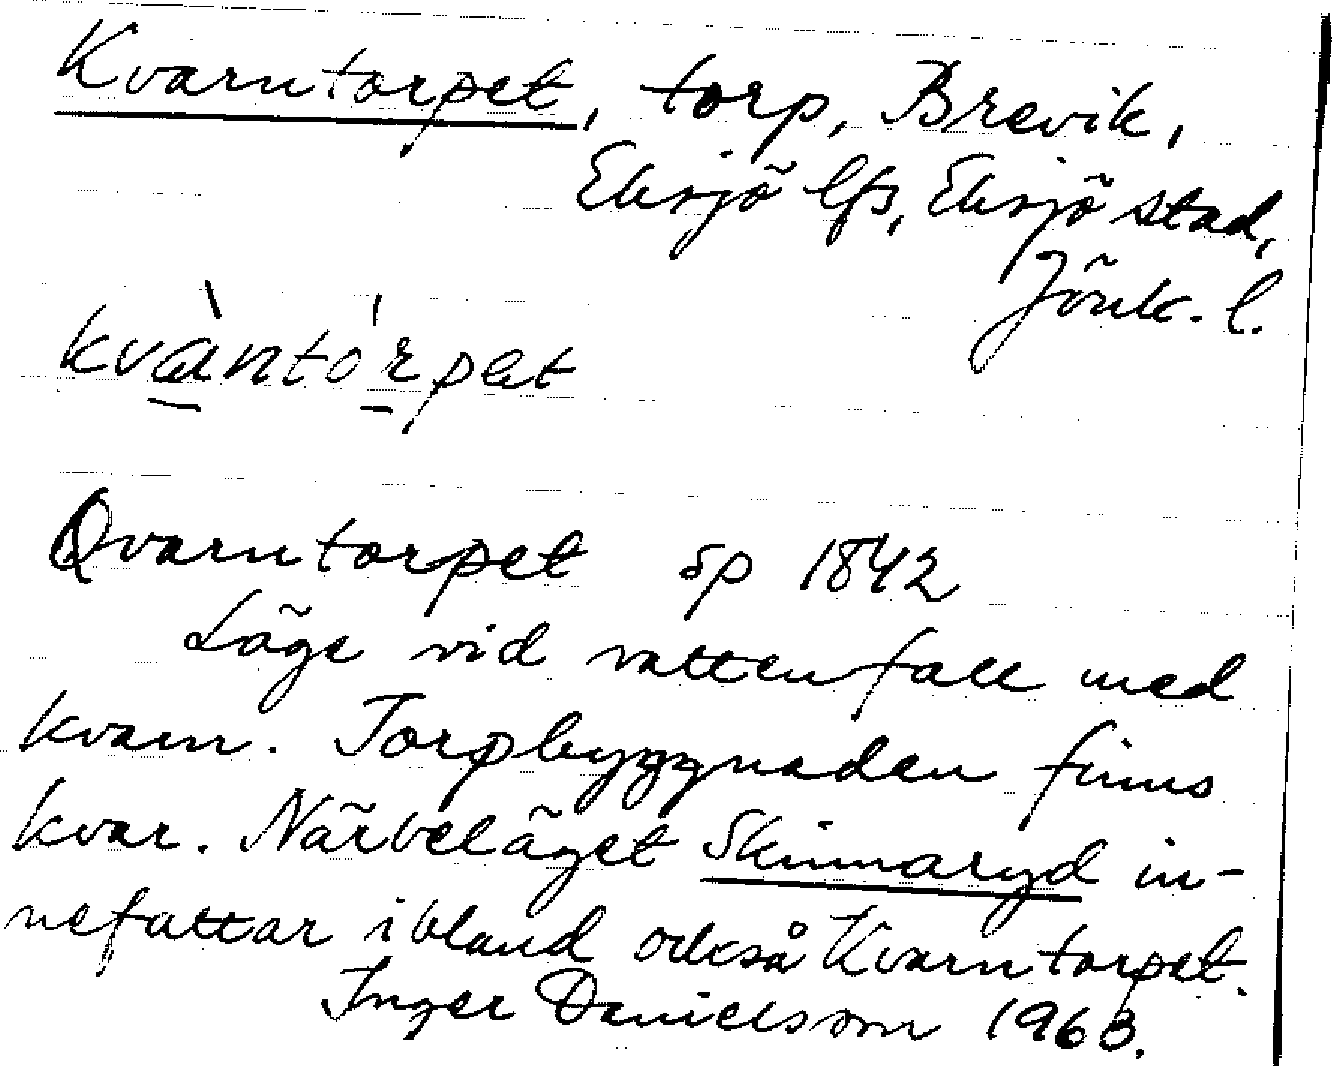 Kvarntorpet, torp, Brevik,
Eksjö lfs, Eksjö stad,
Jönk. l.
kvàntórpet
Qvarntorpet sp 1842
Läge vid vattenfall med
kvarn. Torpbyggnaden finns
kvar. Närbeläget Skinnaryd in-
nefattar ibland också Kvarntorpet.
Inger Danielsson 1963.